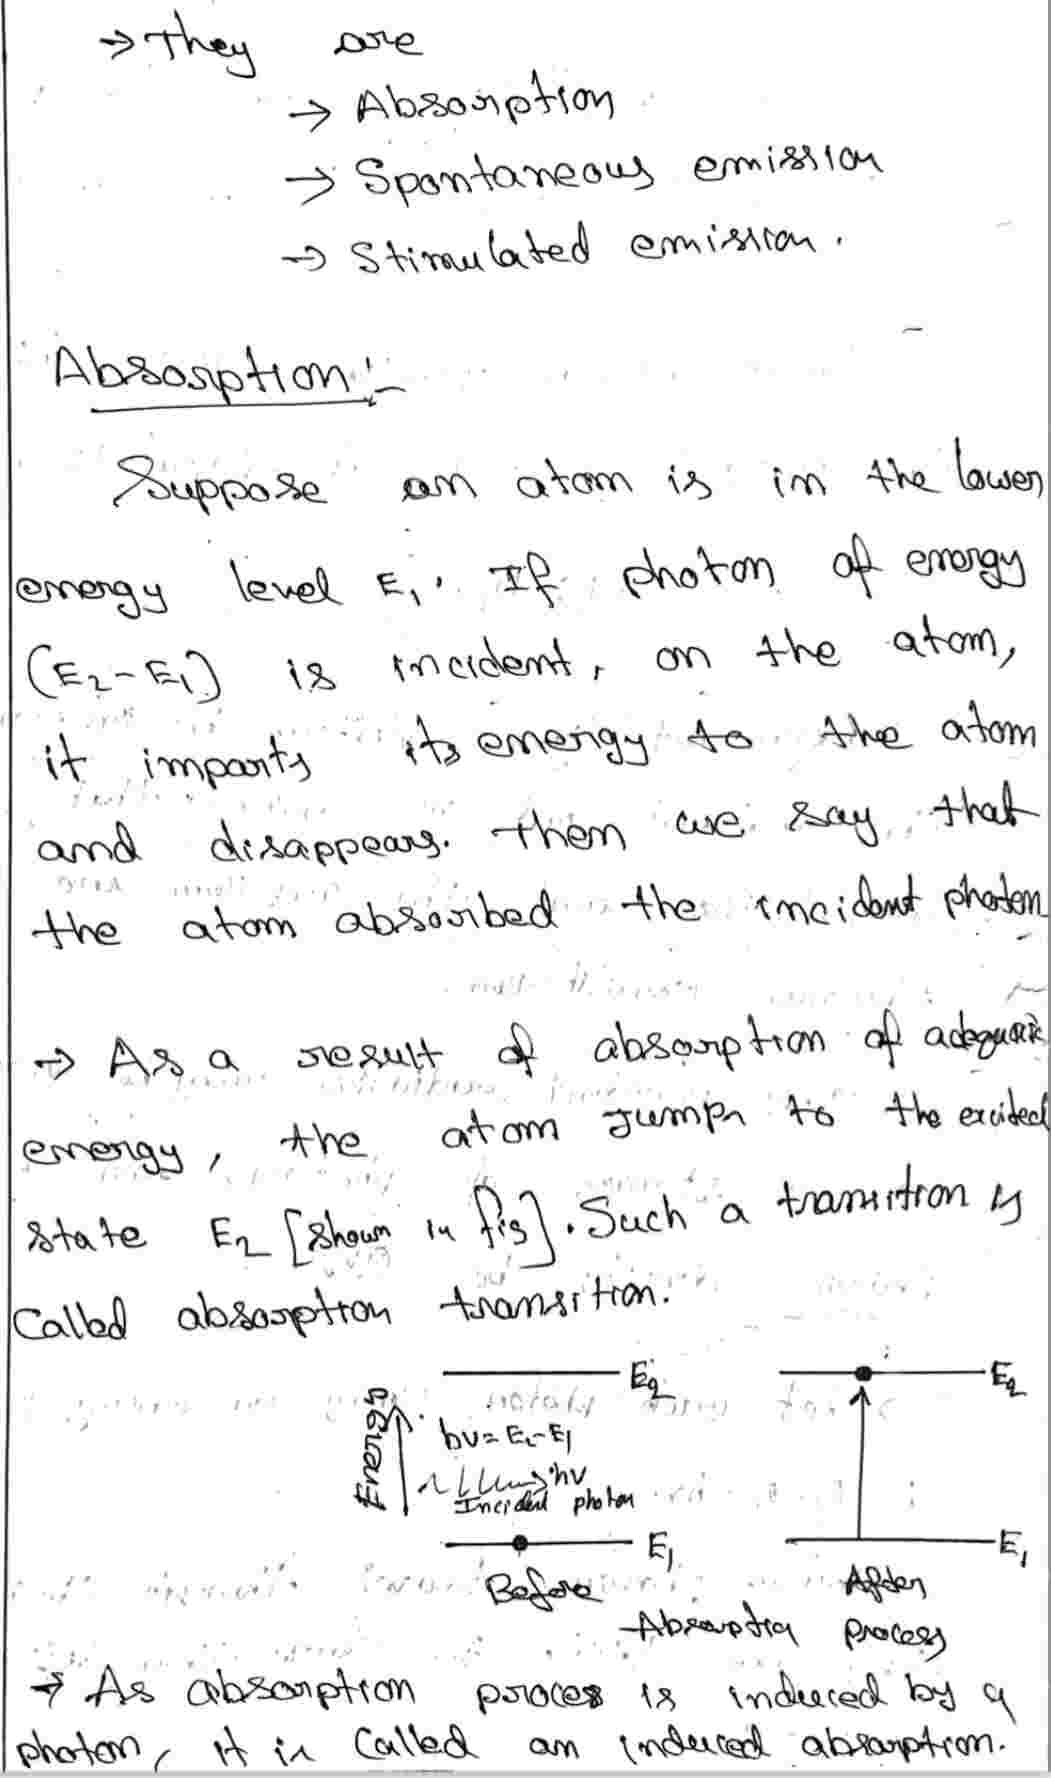 → They are
→ Absorption
→ Spontaneous emission
→ Stimulated emission.
Absorption :-
Suppose an atom is in the lower
energy level E₁. If photon of energy
(E₂-E₁) is incident, on the atom,
it imparts its energy to the atom
and disappears. Then we say that
the atom absorbed the incident photon
→ As a result of absorption of adequate
energy, the atom jumps to the excited
state E₂ [shown in fig]. Such a transition is
Called absorption transition.
E₂ E₂
Energy
hν = E₂-E₁
hν
Incident photon
E₁ E₁
Before After
Absorption process
→ As absorption process is induced by a
photon, it is Called an induced absorption.